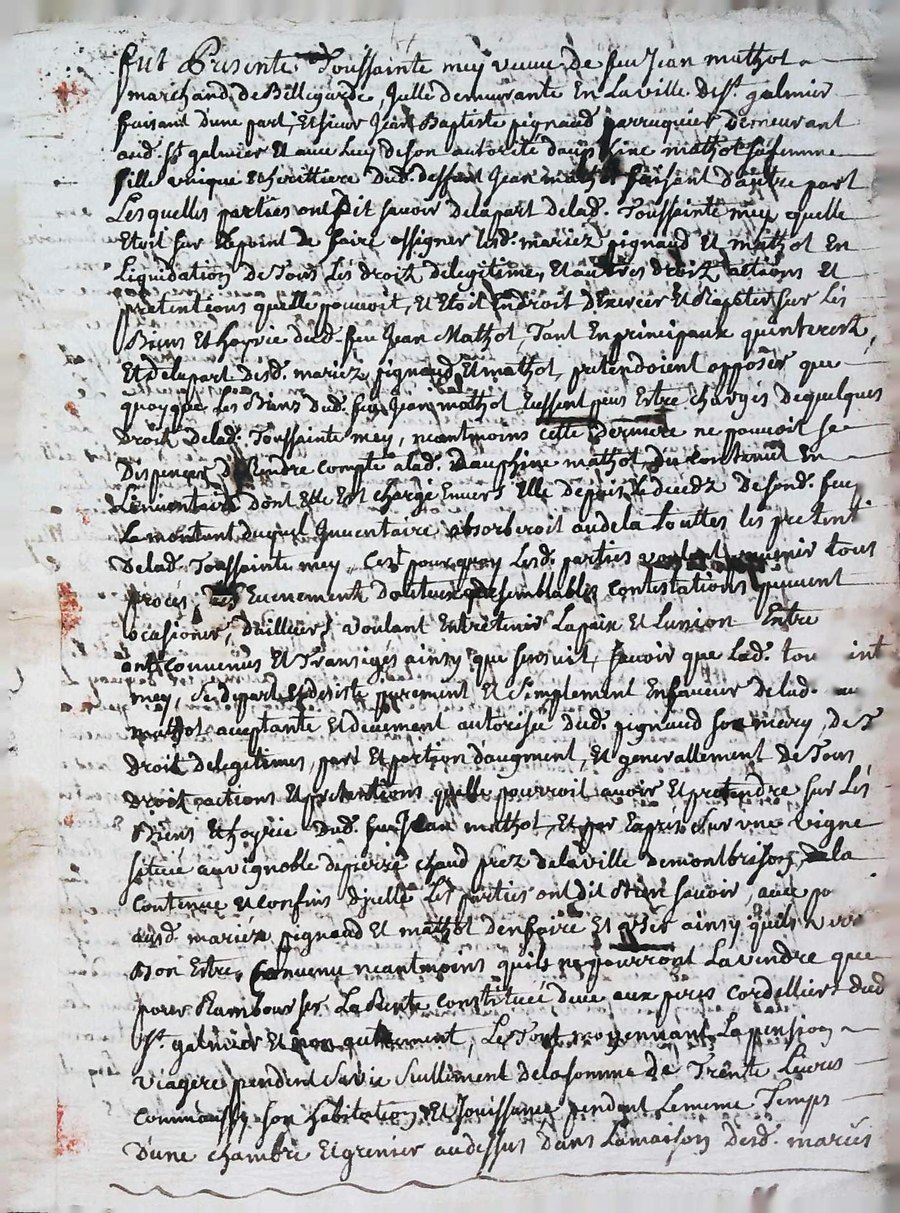 fut Presente Toussainte mey veuve de feu Jean mathot
marchand de Bellegarde, Jcelle demeurante En La ville de st. galmier
faisant d'une part, Et sieur Jean Baptiste pignaud parruquier demeurant
aud. st galmier Et avec Luy de son autorité dauphine mathot sa femme
fille unique Et herittiere dud. deffunt Jean mathot faisant d'autre part
Les quelles parties ont dit savoir de la part de lad. Toussainte mey quelle
Etoit sur le point de faire assigner lesd. mariez pignaud Et mathot En
Liquidation de Tous Les droitz de legitime, Et autres droitz actions Et
pretentions quelle pouvoit, Et Etoit En droit d'Exercer Et Repeter sur Les
Biens Et hoyrie dud. feu Jean Mathot, Tant En principaux qu'interest,
Et de la part desd. mariez pignaud Et mathot, pretendoient opposer que
quoyque Les Biens dud. feu Jean mathot Eussent peus Estre chargés de quelques
droit de lad. Toussainte mey, neantmoins cette derniere ne pouvoit se
dispencer de Rendre compte a lad. dauphine mathot du contenu En
L'inventaire dont Elle Est chargé Envers Elle depuis le decedz de sond. feu
La montant duquel Inventaire absorberoit au dela Touttes les pretenti
de lad. Toussainte mey, C'est pourquoy Lesd. parties voulant tous
procés Evenementz douteux que semblables contestations peuvent
ocasioner, d'ailleurs voulant Entretenir La paix Et L'union Entre
ont convenus Et Transigés ainsy que sensuit, savoir que Lad. tou int
mey, se depart Et desiste purement Et simplement En faveur de lad. au
mathot acceptante Et deuement autorisée dud. pignaud son mary, de T
droit de legitimes, part Et portion d'augment, Et generallement de Tous
droit actions Et pretentions quelle pourroit avoir Et pretendre sur Les
Biens Et hoyrie dud. feu Jean mathot, Et par Exprés sur une vigne
située au vignoble de pierre chaud prez de la ville de montbrison, de la
contenue Et confins d'jcelle Les parties ont dit Bien savoir, avec po
ausd. mariéz pignaud Et mathot d'en faire Et ainsy quils
Bon Estre, Convenu neantmoins quils ne pourront La vendre que
pour Rambourser La Rente constituée düe aux peres Cordelliers dud
st. galmier Et non autrement, Le Tout moyennant La pension
viagere pendent sa vie seullement de la somme de Trente Livres
comme aussy son habitation, Et Jouissance pendent Le meme Temps
d'une chambre Et grenier au dessus dans La maison desd. mariés